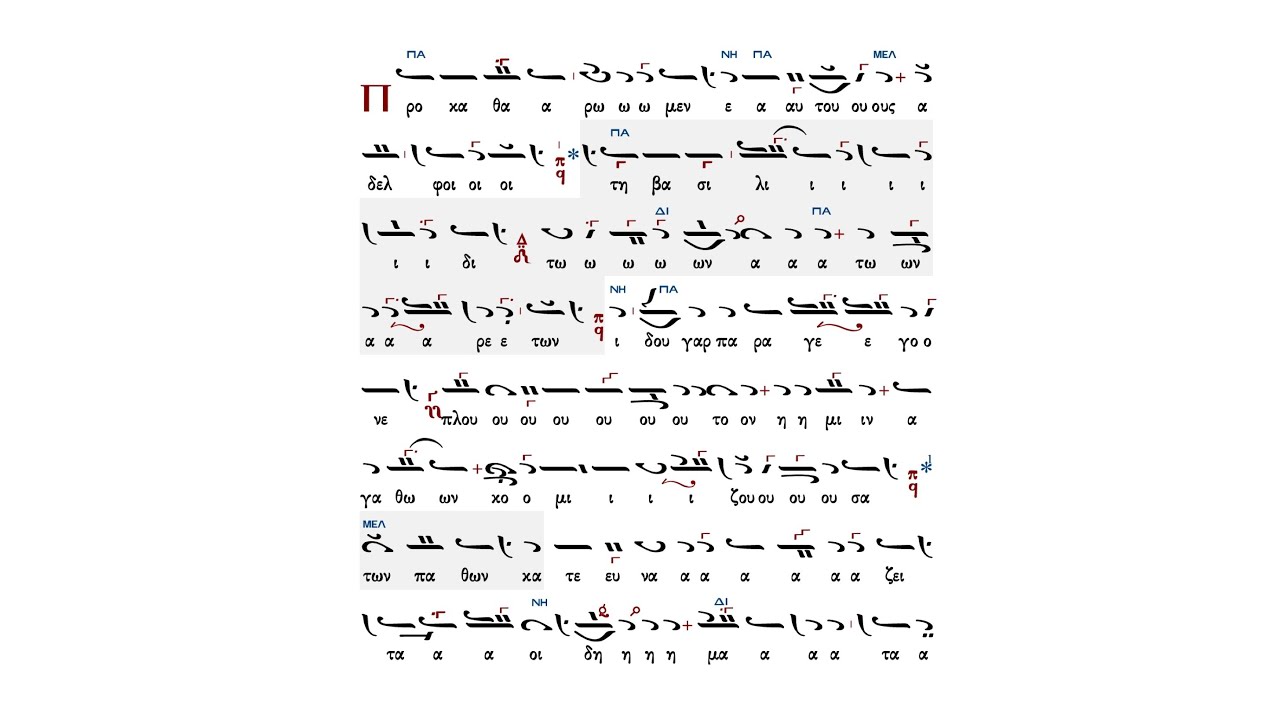 ΠΑ ΝΗ ΠΑ ΜΕΛ
Π ρο κα θα α ρω ω ω μεν ε α αυ του ου ους α
ΠΑ
δελ φοι οι οι π q * τη βα σι λι ι ι ι ι
ΔΙ ΠΑ
ι ι δι Δ τω ω ω ω ων α α α τω ων
ΝΗ ΠΑ
α α α ρε ε των π q ι δου γαρ πα ρα γε ε γο ο
νε πλου ου ου ου ου ου ου το ον η η μι ιν α
γα θω ων κο ο μι ι ι ι ζου ου ου ου σα π q *
ΜΕΛ
των πα θων κα τε ευ να α α α α α α ζει
ΝΗ ΔΙ
τα α α οι δη η η η μα α α α τα α